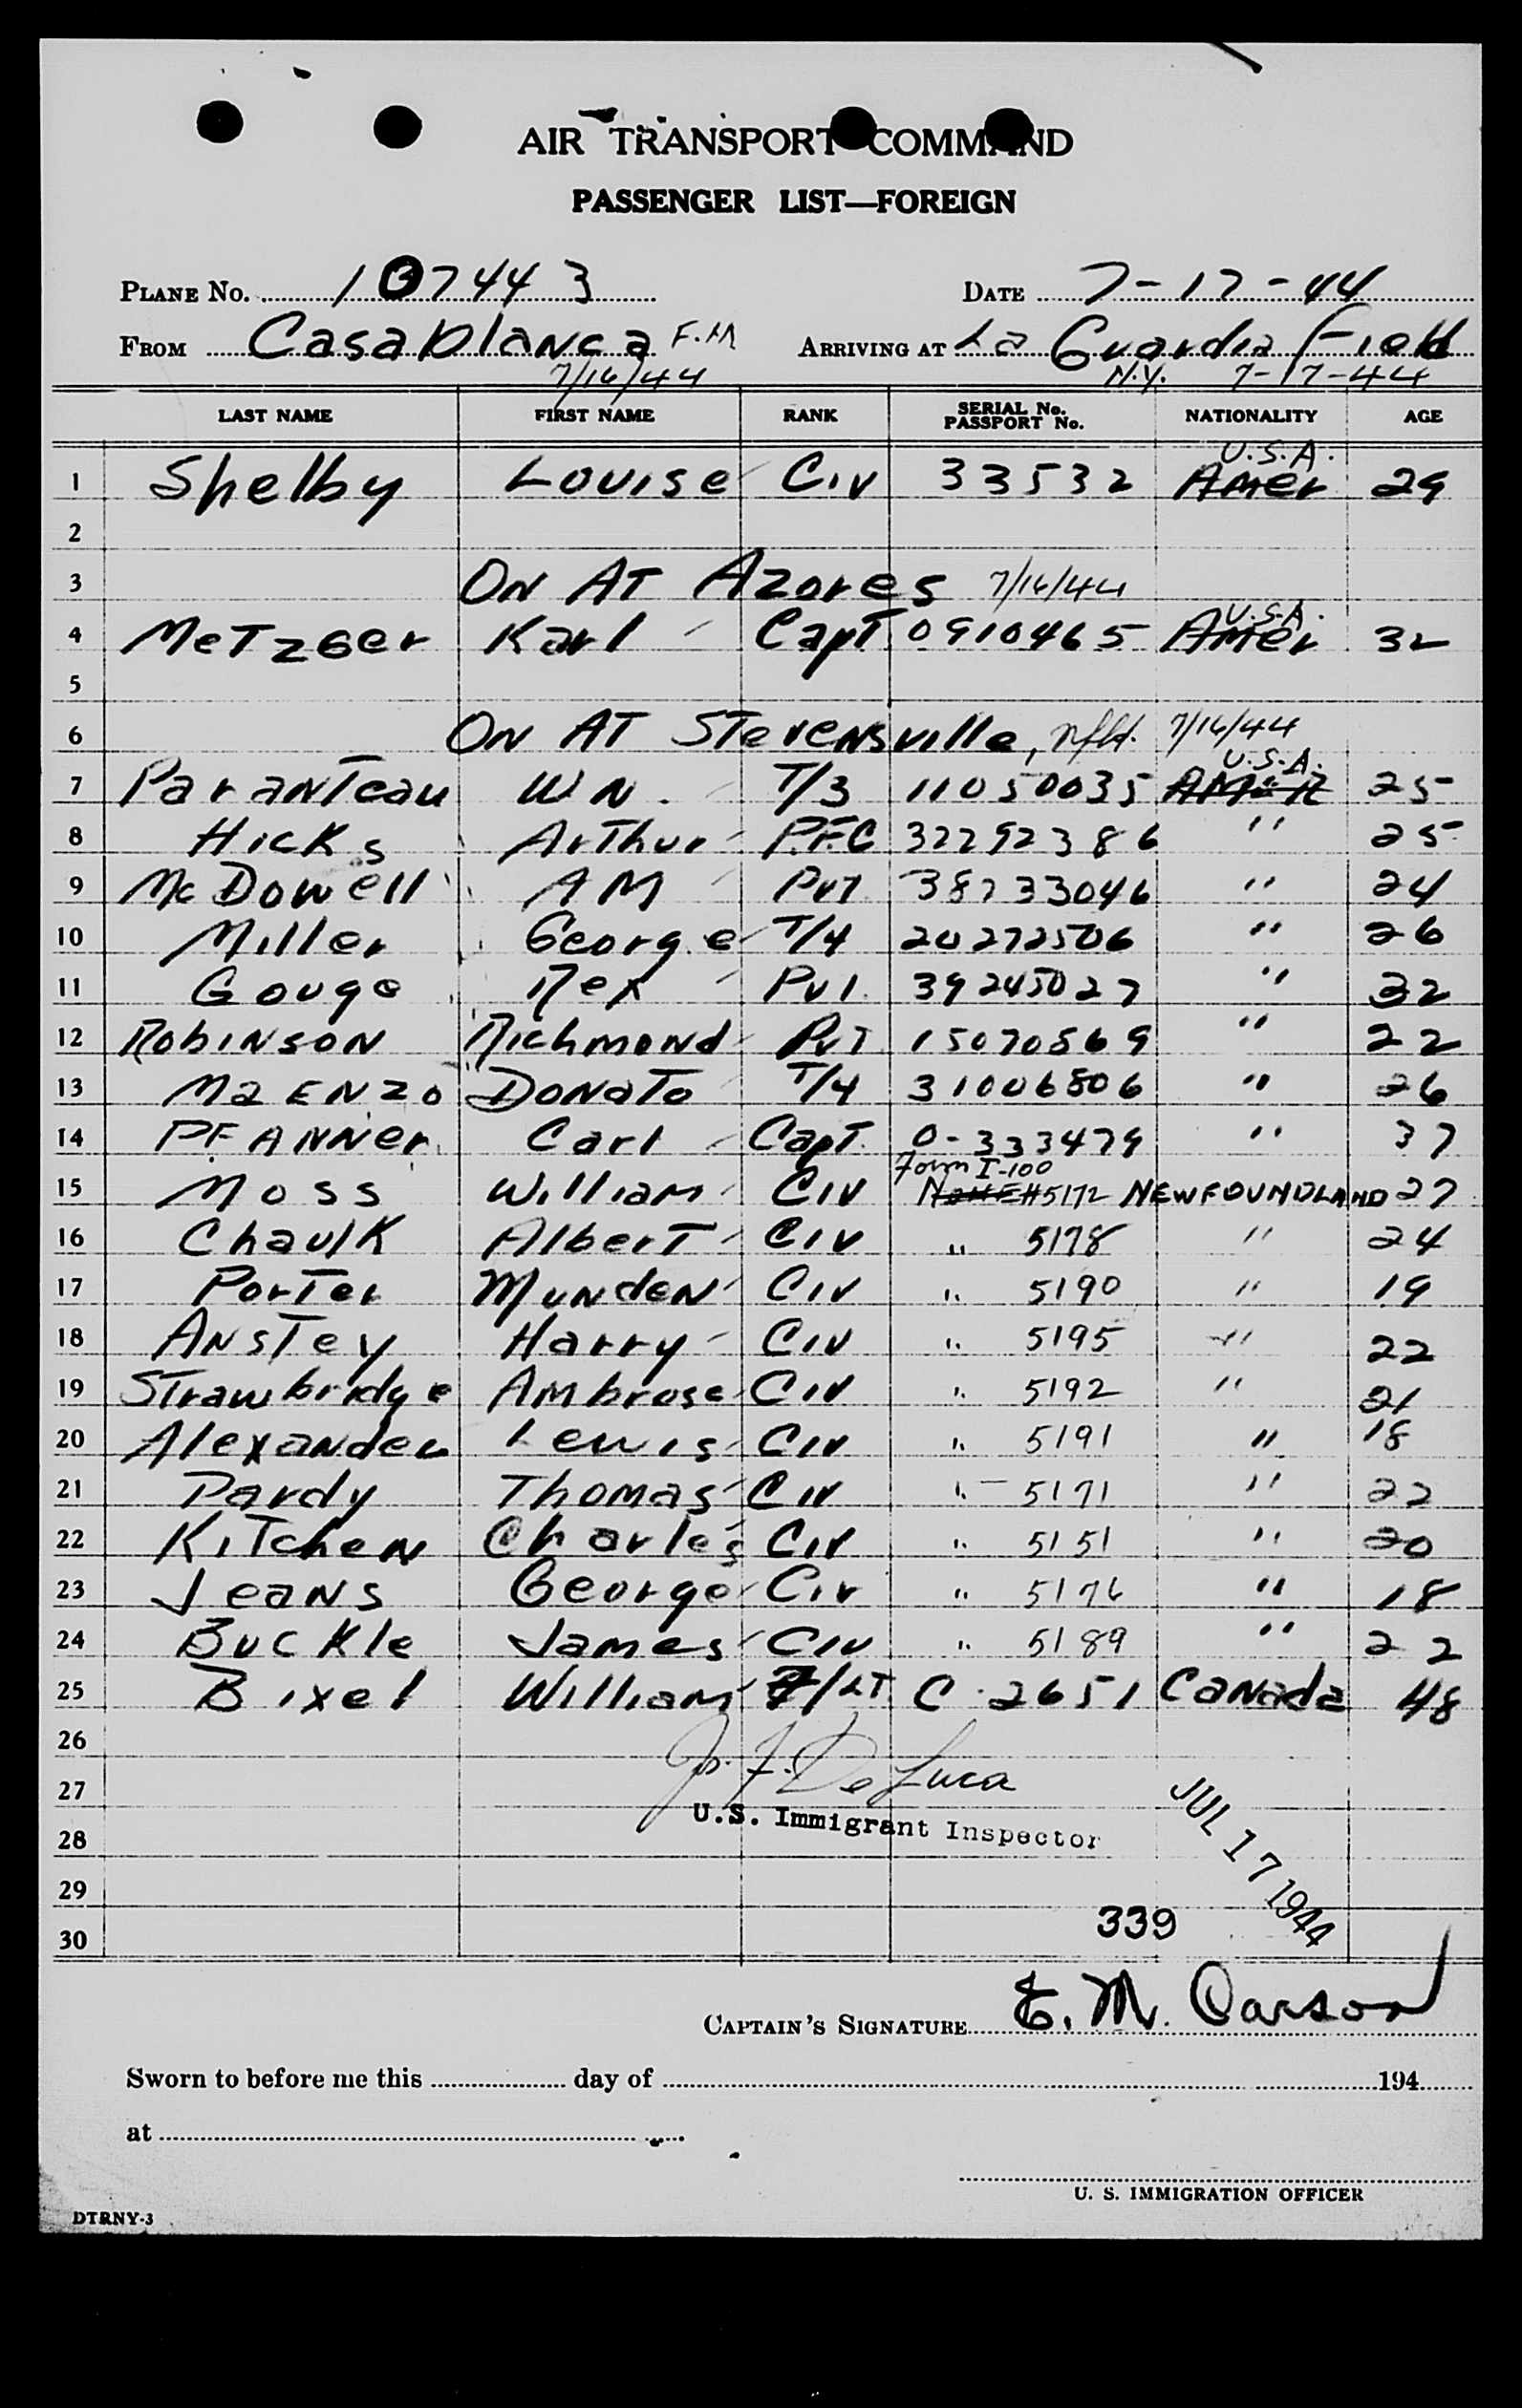 AIR TRANSPORT COMMAND
PASSENGER LIST—FOREIGN
PLANE No. 107443 DATE 7-17-44
FROM Casablanca F.M ARRIVING AT La Guardia Field
7/16/44 N.Y. 7-17-44
LAST NAME FIRST NAME RANK SERIAL No. PASSPORT No. NATIONALITY AGE
U.S.A.
1 Shelby Louise Civ 33532 Amer 29
2
3 ON AT Azores 7/16/44
U.S.A.
4 Metzger Karl Capt. 0910465 Amer 32
5
6 ON AT Stevensville, Nfld. 7/16/44
U.S.A.
7 Paranteau WN. T/3 11050035 AMER 25
8 Hicks Arthur P.F.C 32292386 " 25
9 McDowell AM Pvt 38733046 " 24
10 Miller George T/4 20272506 " 26
11 Gouge Rex Pvt. 39245027 " 32
12 Robinson Richmond Pvt 15070569 " 22
13 Maenzo Donato T/4 31006806 " 26
14 PFANNer Carl Capt. 0-333479 " 37
Form I-100
15 Moss William Civ 5172 NEWFOUNDLAND 27
16 Chaulk Albert Civ " 5178 " 24
17 Porter Munden Civ " 5190 " 19
18 Anstey Harry Civ " 5195 " 22
19 Strawbridge Ambrose Civ " 5192 " 21
20 Alexander Lewis Civ " 5191 " 18
21 Pardy Thomas Civ " 5171 " 22
22 Kitchen Charles Civ " 5151 " 20
23 Jeans George Civ " 5176 " 18
24 Buckle James Civ " 5189 " 22
25 Bixel William F/LT C-2651 Canada 48
26
J. F. De Luca
27
U.S. Immigrant Inspector
JUL 17 1944
28
29
339
30
CAPTAIN'S SIGNATURE E. M. Carson
Sworn to before me this day of 194
at
U. S. IMMIGRATION OFFICER
DTRNY-3